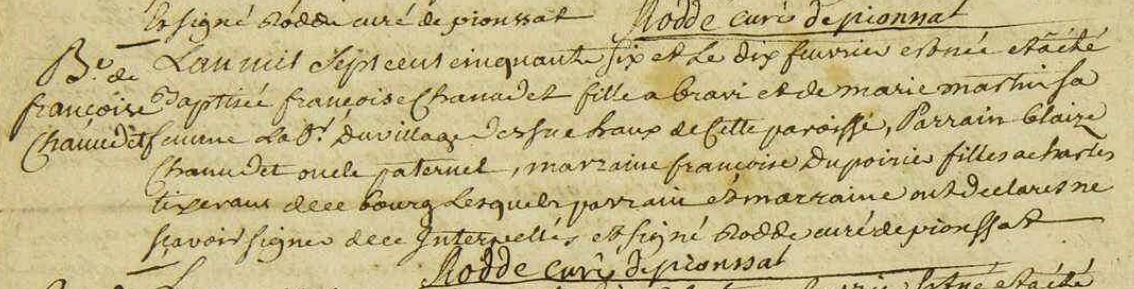 Et signé Rodde curé de pionssat Rodde curé de pionsat
B.e de
françoise
Chanudet
L'an mil sept cent cinquante six et le dix fevrier est née et a été
Baptisée françoise Chanudet fille a bravi et de marie martin sa
femme La du village de cette paroisse, Parrain blaize
Chanudet oncle paternel, marraine françoise Dupoirie fille a charles
tixerant de ce bourg Lesquels parrain et marraine ont declarés ne
sçavoir signer de ce Interpellés et signé Rodde curé de pionssat
Rodde curé de pionssat
est née et a été